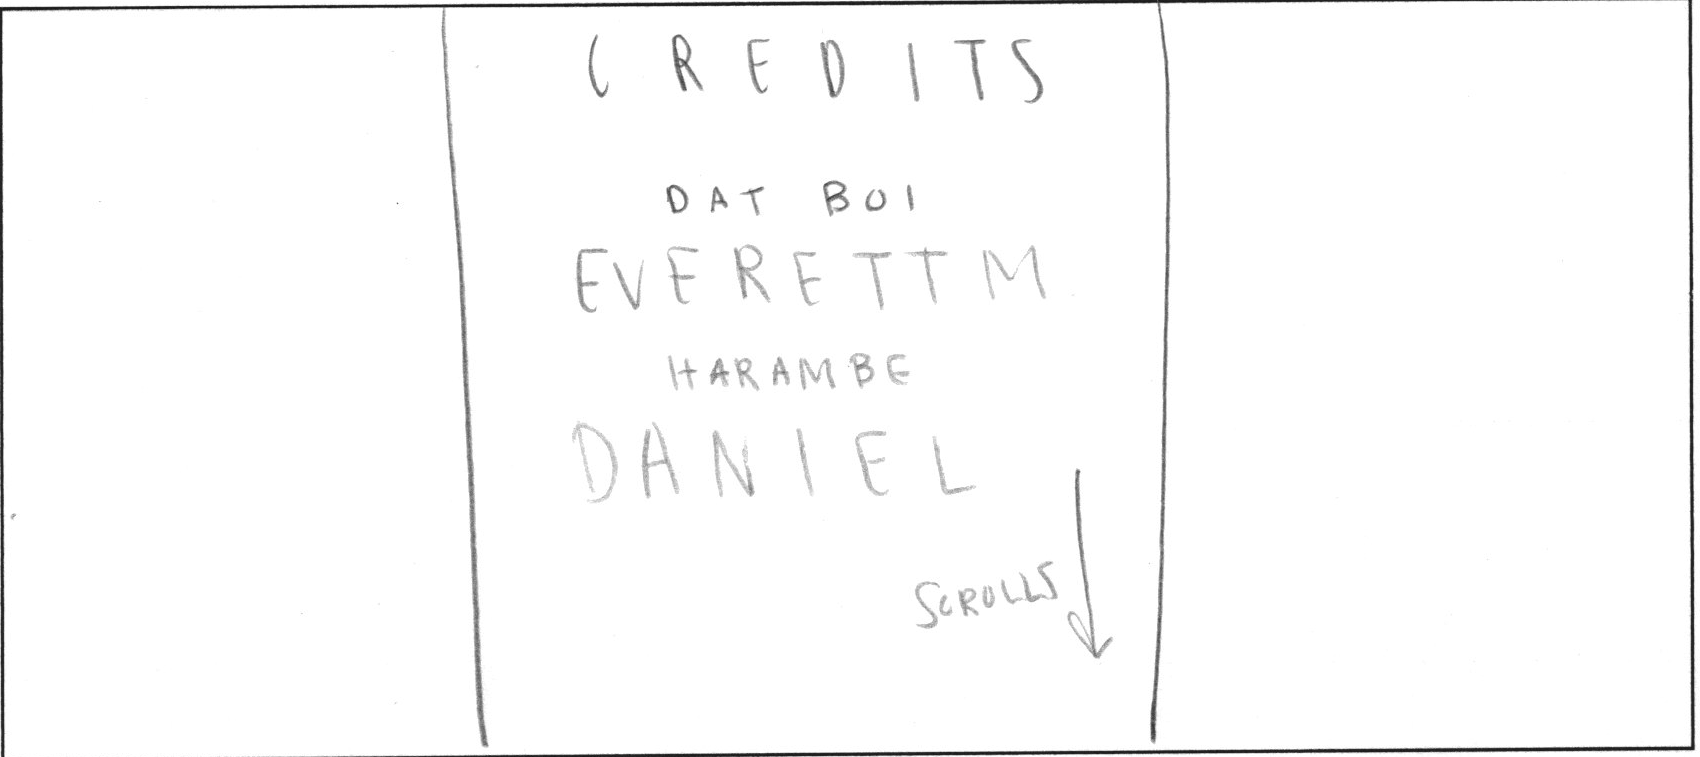 CREDITS
DAT BOI
EVERETT M
HARAMBE
DANIEL
SCROLLS